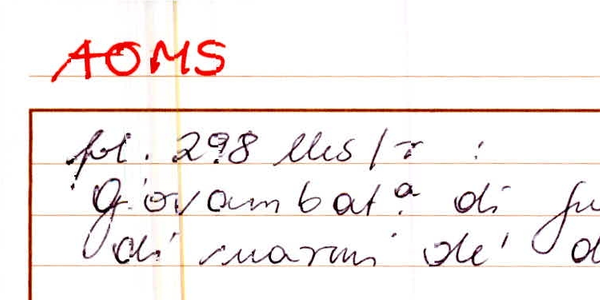 AOMS
fol. 298
Giovambat.ª di
di marmi de'